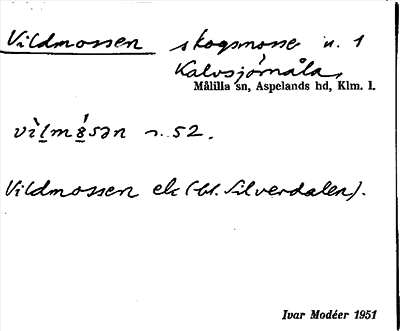 Vildmossen skogsmosse u. 1
Kalvsjömåla,
Målilla sn, Aspelands hd, Klm. l.
vìlmɞ́sən r. 52.
Vildmossen ek (bl. Silverdalen).
Ivar Modéer 1951